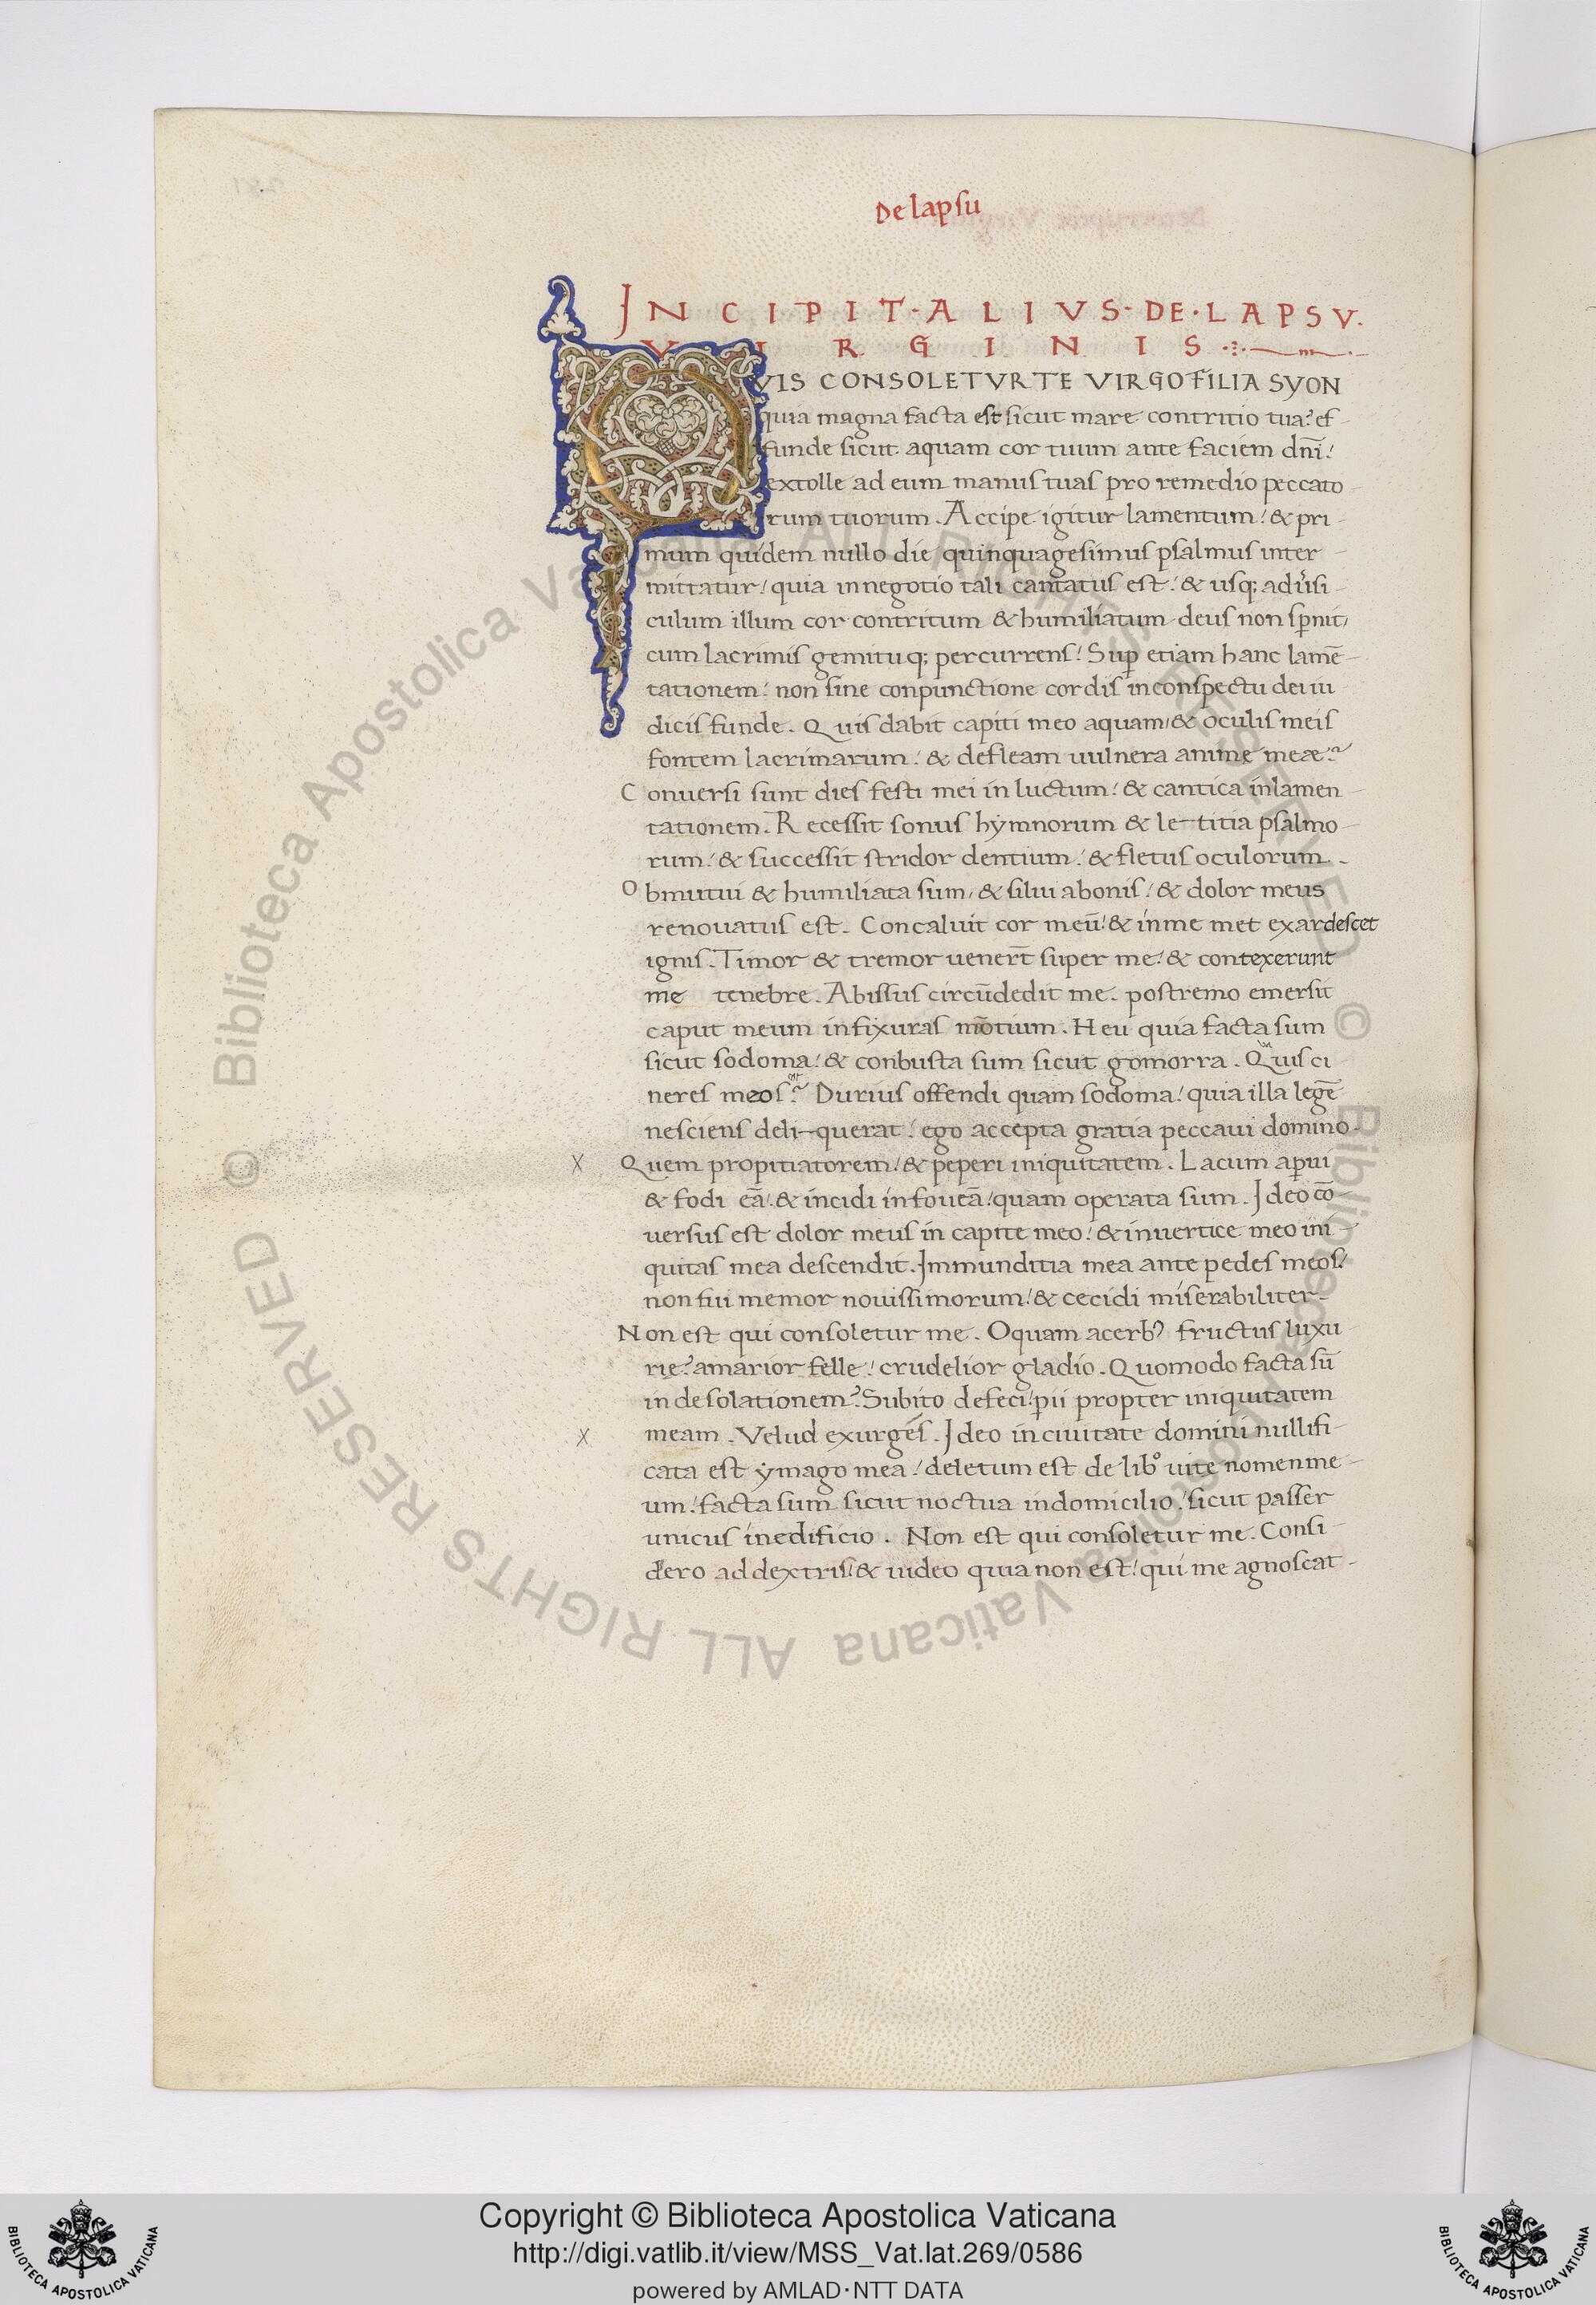 De lapsu
INCIPIT·ALIVS·DE·LAPSV.
VIRGINIS
QVIS CONSOLETVR TE VIRGO FILIA SYON
quia magna facta est sicut mare contritio tua? ef-
funde sicut aquam cor tuum ante faciem dn̄i!
extolle ad eum manus tuas pro remedio peccato-
rum tuorum. Accipe igitur lamentum! & pri-
mum quidem nullo die quinquagesimus psalmus inter-
mittatur/ quia in negotio tali cantatus est! & usq; ad uersi-
culum illum cor contritum & humiliatum deus non sp̄nit,
cum lacrimis gemituq; percurrens! Sup̄ etiam hanc lamē-
tationem! non sine conpunctione cordis in conspectu dei iu
dicis funde. Quis dabit capiti meo aquam/& oculis meis
fontem lacrimarum! & defleam uulnera anime meæ?
Conuersi sunt dies festi mei in luctum! & cantica in lamen-
tationem. Recessit sonus hẏmnorum & letitia psalmo-
rum! & successit stridor dentium! & fletus oculorum.
Obmutui & humiliata sum, & silui a bonis! & dolor meus
renouatus est. Concaluit cor meū! & in me met exardescet
ignis. Timor & tremor uenerт̄ super me! & contexerunt
me tenebre. Abissus circūdedit me. postremo emersit
caput meum in fixuras mōtium. Heu quia facta sum
sicut sodoma! & conbusta sum sicut gomorra. Quis ci
neres meos? Durius offendi quam sodoma! quia illa legē
nesciens deliquerat! ego accepta gratia peccaui domino.
X Quem propitiatorem! & peperi iniquitatem. Lacum ap̄ui
& fodi eā! & incidi in foueā! quam operata sum. Ideo cō-
uersus est dolor meus in capite meo! & in uertice meo ini-
quitas mea descendit. Immunditia mea ante pedes meos!
non fui memor nouissimorum! & cecidi miserabiliter.
Non est qui consoletur me. O quam acerbꝰ fructus luxu-
rie? amarior felle! crudelior gladio. Quomodo facta sū
in desolationem? Subito defeci! p̄ii propter iniquitatem
X meam. Velud exurgēs. Ideo in ciuitate domini nullifi-
cata est ẏmago mea! deletum est de libº uite nomen me-
um! facta sum sicut noctua in domicilio! sicut passer
unicus in edificio. Non est qui consoletur me. Consi-
dero ad dextris! & uideo quia non est! qui me agnoscat-
© Biblioteca Apostolica Vaticana ALL RIGHTS RESERVED
© Biblioteca Apostolica Vaticana ALL RIGHTS RESERVED
Copyright © Biblioteca Apostolica Vaticana
http://digi.vatlib.it/view/MSS_Vat.lat.269/0586
powered by AMLAD·NTT DATA
BIBLIOTECA APOSTOLICA VATICANA
BIBLIOTECA APOSTOLICA VATICANA